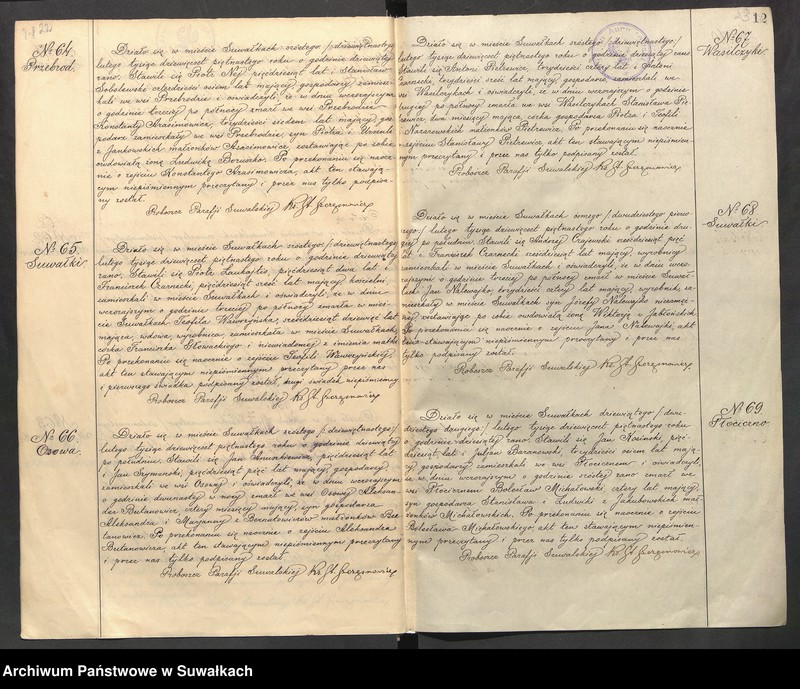 12
№ 64.
Przebrod.
Działo się w mieście Suwałkach szóstego /dziewiętnastego/
lutego tysiąc dziewięćset piętnastego roku o godzinie dziewiątej
rano. Stawili się Piotr pięćdziesiąt lat i Stanisław
Sobolewski czterdzieści osiem lat mający, gospodarzy, zamiesz-
kali we wsi Przebrodzie i oświadczyli, że w dniu wczorajszym
o godzinie trzeciej po północy zmarł we wsi Przebrodzie
Konstanty Krasimowicz, trzydzieści siedem lat mający, gos-
podarz zamieszkały we wsi Przebrodzie, syn Piotra i
z Jankowskich małżonków zostawując po sobie
owdowiałą żonę Ludwikę Po przekonaniu się naocz-
nie o zejściu Konstantego akt ten stawają-
cym niepiśmiennym przeczytany i przez nas tylko podpisa-
ny został.
Proboszcz Parafji Suwalskiej Ks. St.
№ 65.
Suwałki.
Działo się w mieście Suwałkach szóstego /dziewiętnastego/
lutego tysiąc dziewięćset piętnastego roku o godzinie dziewiątej
rano. Stawili się Piotr pięćdziesiąt dwa lat i
Franciszek Czarnecki, pięćdziesiąt sześć lat mający, kościelni,
zamieszkali w mieście Suwałkach i oświadczyli, że w dniu
wczorajszym o godzinie trzeciej po północy zmarła w mieś-
cie Suwałkach Teofila Wawrzyńska, sześćdziesiąt dziewięć lat
mająca, wdowa, wyrobnica zamieszkała w mieście Suwałkach,
córka Franciszka Słowackiego i niewiadomej z imienia matki.
Po przekonaniu się naocznie o zejściu Teofili Wawrzyńskiej
akt ten stawającym niepiśmiennym przeczytany przez nas
i pierwszego świadka podpisany został, drugi świadek niepiśmienny.
Proboszcz Parafji Suwalskiej Ks. St.
№ 66.
Osowa.
Działo się w mieście Suwałkach szóstego /dziewiętnastego/
lutego tysiąc dziewięćset piętnastego roku o godzinie
po południu. Stawili się Jan pięćdziesiąt lat
i Jan Szymański, pięćdziesiąt pięć lat mający, gospodarzy,
zamieszkali we wsi Osowej i oświadczyli, że w dniu wczorajszym
o godzinie dwunastej w nocy zmarł we wsi Osowej Aleksan-
der Butanowicz, cztery miesięcy mający, syn gospodarza
Aleksandra i Marjanny z małżonków Bu-
tanowicz. Po przekonaniu się naocznie o zejściu Aleksandra
Butanowicza, akt ten stawającym niepiśmiennym przeczytany
i przez nas tylko podpisany został.
Proboszcz Parafji Suwalskiej Ks. St.
№ 67.
Wasilczyki.
Działo się w mieście Suwałkach szóstego /dziewiętnastego/
lutego tysiąc dziewięćset piętnastego roku o godzinie dziesiątej rano
Stawili się Antoni Pietrewicz, trzydzieści cztery lat i Antoni
Czarnecki, trzydzieści sześć lat mający, gospodarze zamieszkali we
wsi Wasilczykach i oświadczyli, że w dniu wczorajszym o godzinie
drugiej po północy zmarła we wsi Wasilczykach Stanisława Pie-
trewicz, dwa miesięcy mająca, córka gospodarza Piotra i Teofili
z Nazarewskich małżonków Pietrewicz. Po przekonaniu się naocznie
o zejściu Stanisławy Pietrewicz, akt ten stawającym niepiśmien-
nym przeczytany i przez nas tylko podpisany został.
Proboszcz Parafji Suwalskiej Ks. St.
№ 68
Suwałki
Działo się w mieście Suwałkach ósmego /dwudziestego pierw-
szego/ lutego tysiąc dziewięćset piętnastego roku o godzinie dru-
giej po południu. Stawili się Andrzej Czajewski sześćdziesiąt pięć
lat i Franciszek Czarnecki sześćdziesiąt lat mający, wyrobnicy
zamieszkali w mieście Suwałkach i oświadczyli, że w dniu wczo-
rajszym o godzinie trzeciej po północy zmarł w mieście Suwał-
kach Jan Nalewajko, trzydzieści cztery lat mający, wyrobnik, za-
mieszkały w mieście Suwałkach syn Józefy Nalewajko niezamęż-
nej zostawując po sobie owdowiałą żonę Wiktorję z Jabłońskich
Po przekonaniu się naocznie o zejściu Jana Nalewajki, akt
ten stawającym niepiśmiennym przeczytany i przez nas
tylko podpisany został.
Proboszcz Parafji Suwalskiej Ks. St.
№ 69
Płociczno
Działo się w mieście Suwałkach dziewiątego /dwu-
dziestego drugiego/ lutego tysiąc dziewięćset piętnastego roku
o godzinie dziesiątej rano. Stawili się Jan Nosiński, pięć-
dziesiąt lat i Juljan Baranowski, trzydzieści osiem lat mają-
cy gospodarzy zamieszkali we wsi Płocicznem i oświadczyli,
że w dniu wczorajszym o godzinie szóstej rano zmarł we
wsi Płocicznem Bolesław Michałowski, cztery lat mający,
syn gospodarza Stanisława i Ludwiki z Jakubowskich mał-
żonków Michałowskich. Po przekonaniu się naocznie o zejściu
Bolesława Michałowskiego akt ten stawającym niepiśmien-
nym przeczytany i przez nas tylko podpisany został.
Proboszcz Parafji Suwalskiej Ks. St.
Archiwum Państwowe w Suwałkach